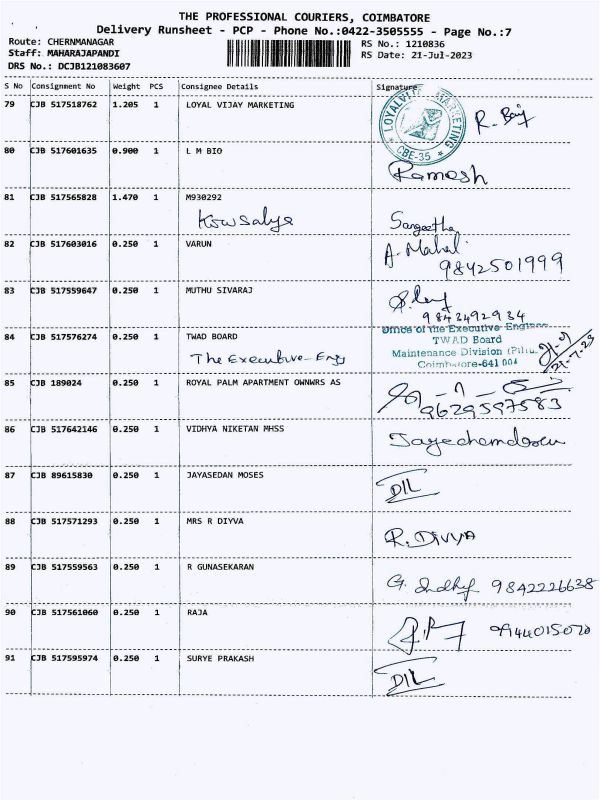 THE PROFESSIONAL COURIERS, COIMBATORE
Delivery Runsheet - PCP - Phone No.:0422-3505555 - Page No.:7
Route: CHERNMANAGAR
RS No.: 1210836
Staff: MAHARAJAPANDI
RS Date: 21-Jul-2023
DRS No.: DCJB121083607
S No Consignment No Weight PCS Consignee Details Signature
79 CJB 517518762 1.205 1 LOYAL VIJAY MARKETING
MARKETING
CBE-35
80 CJB 517601635 0.900 1 L M BIO
Ramesh
81 CJB 517565828 1.470 1 M930292
Kowsalya
Sangeetha
82 CJB 517603016 0.250 1 VARUN
A. Mahal
9842501999
83 CJB 517559647 0.250 1 MUTHU SIVARAJ
9842492934
84 CJB 517576274 0.250 1 TWAD BOARD
The Executive-Engg
Office of the Executive Engineer
TWAD Board
Maintenance Division
Coimbatore-641 004
21-7-23
85 CJB 189024 0.250 1 ROYAL PALM APARTMENT OWNWRS AS
9629597583
86 CJB 517642146 0.250 1 VIDHYA NIKETAN MHSS
87 CJB 89615830 0.250 1 JAYASEDAN MOSES
DIL
88 CJB 517571293 0.250 1 MRS R DIYVA
R. DIVYA
89 CJB 517559563 0.250 1 R GUNASEKARAN
9842226638
90 CJB 517561060 0.250 1 RAJA
9944015070
91 CJB 517595974 0.250 1 SURYE PRAKASH
DIL